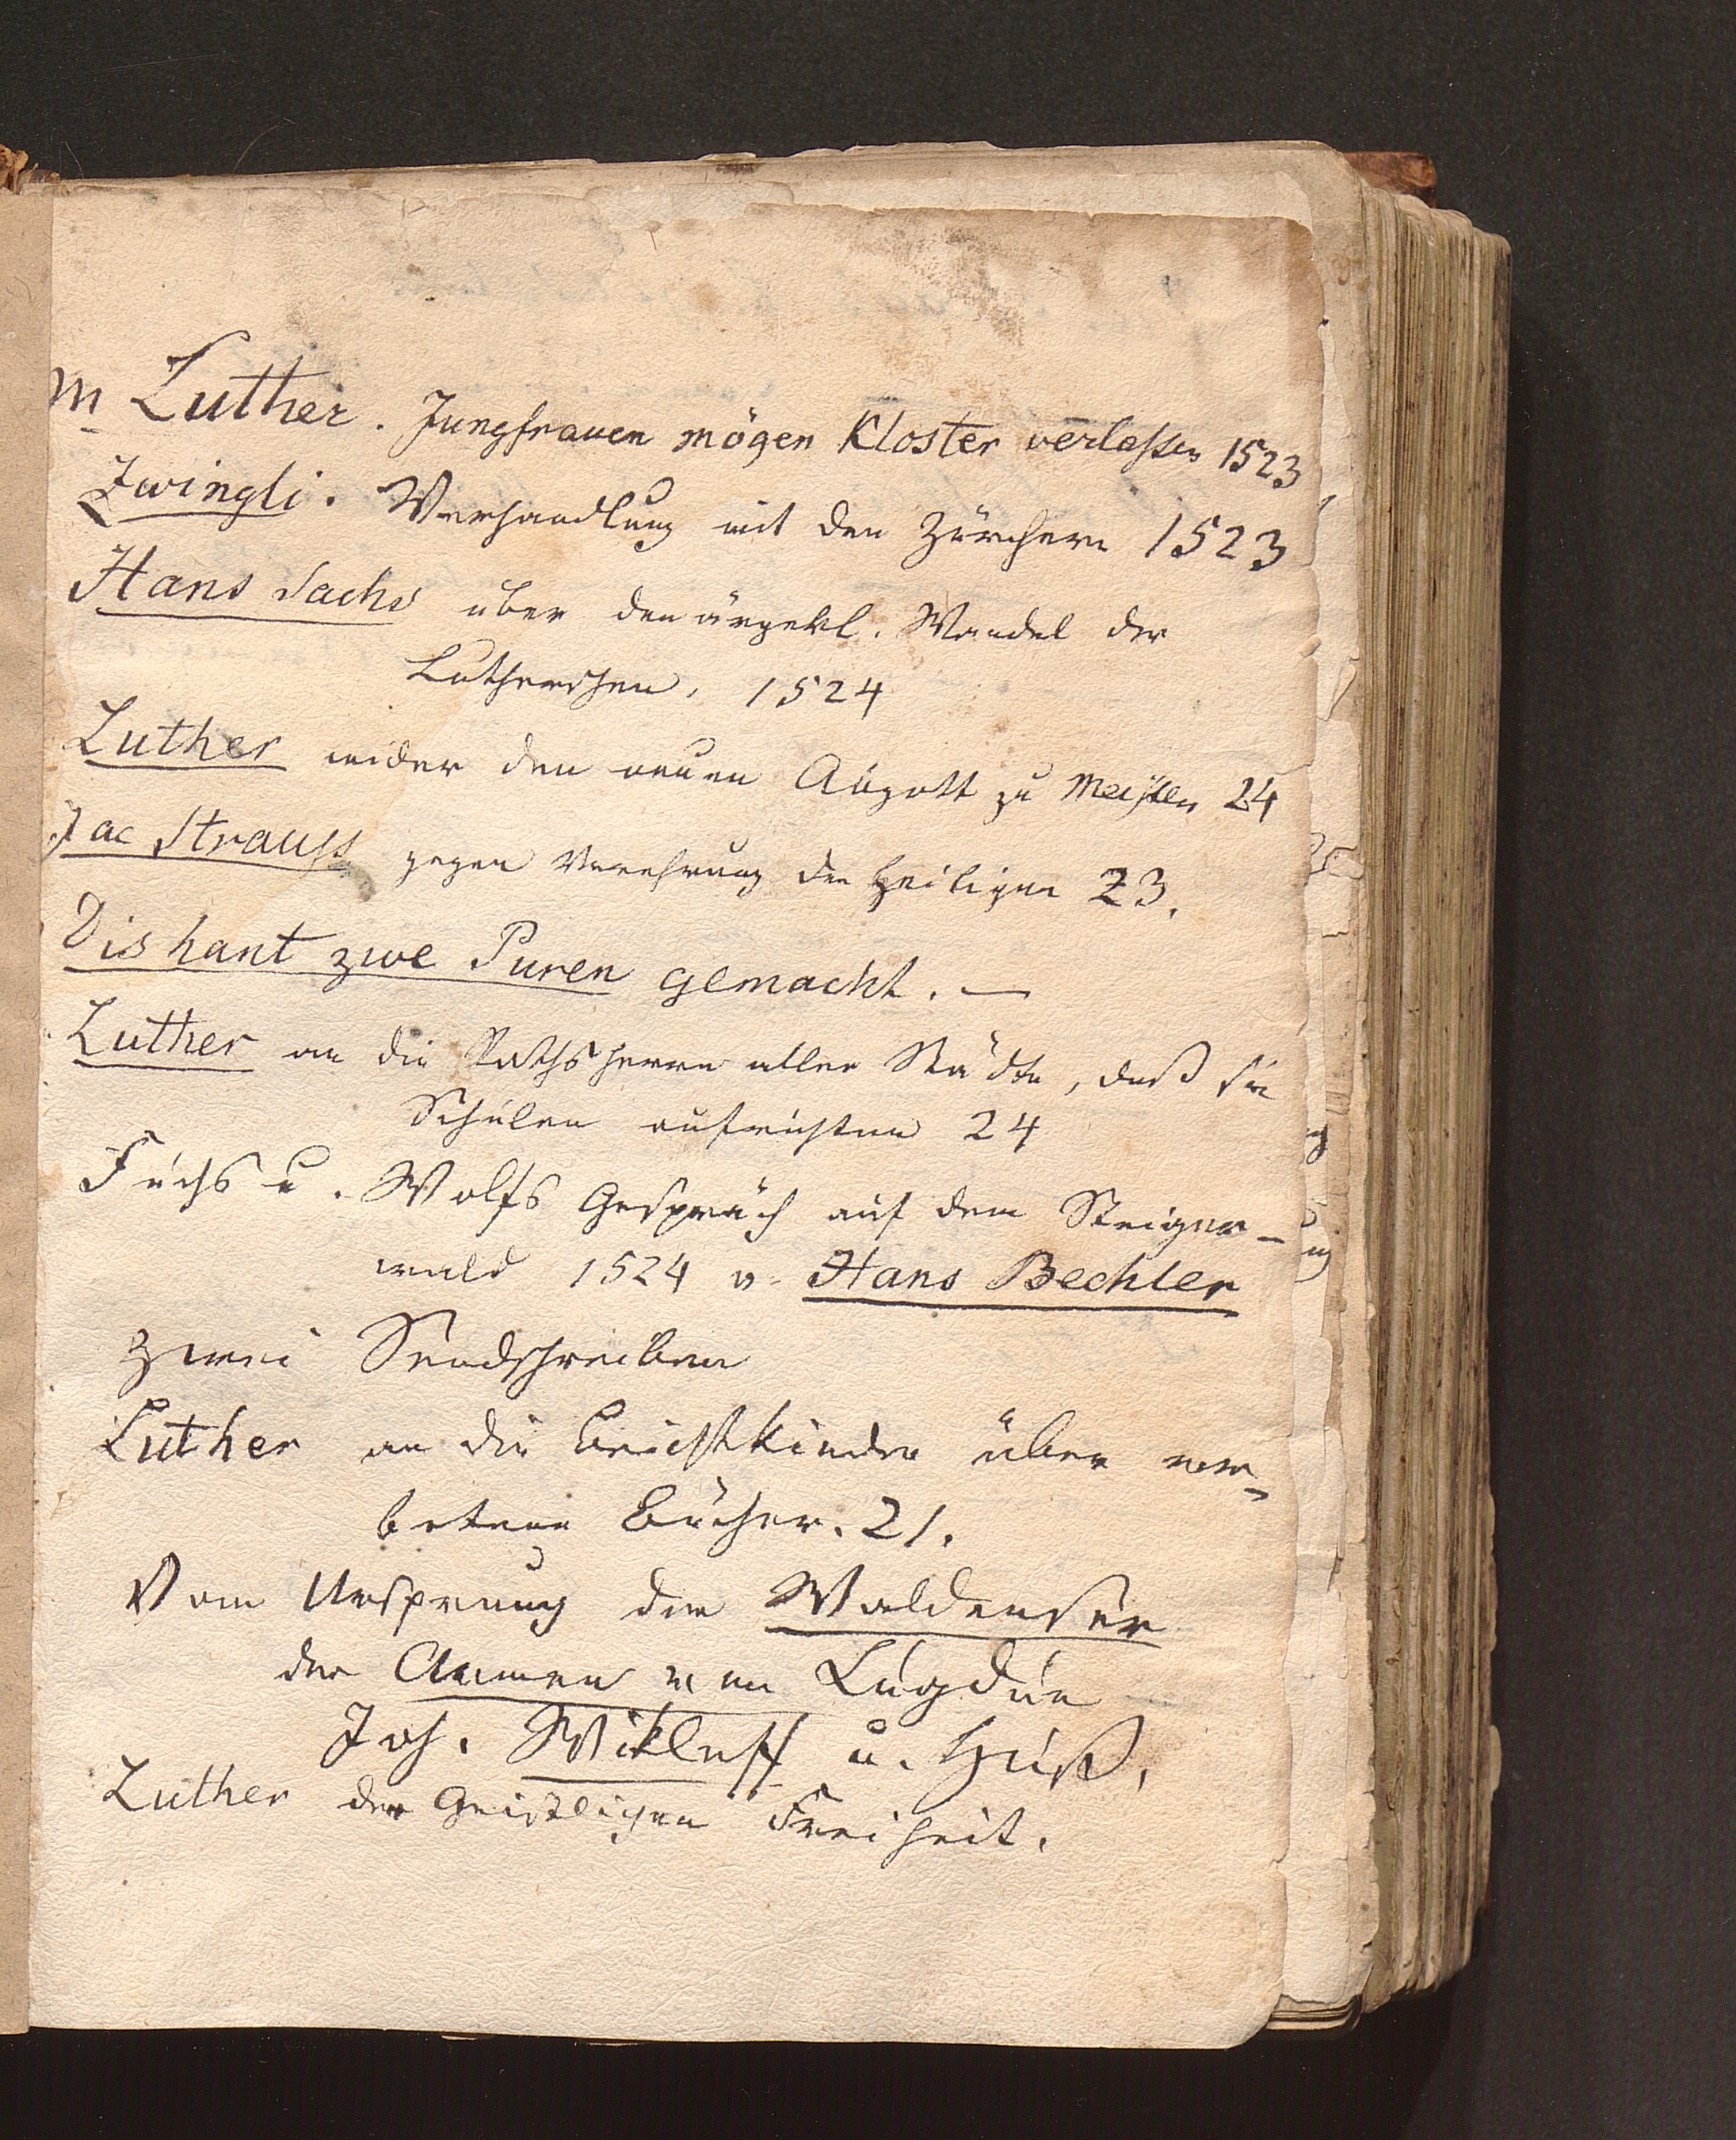 M Luther. Jungfrauen mögen Kloster verlaßen 1523
Zwingli. Verhandlung mit den Zürchern 1523
Hans Sachs über den ärgerl. Wandel der
Lutherschen. 1524
Luther wider den neuen Abgott zu Meißen 24
Jac Strauss gegen Verehrung der Heiligen 23.
Dis hant zwe Puren gemacht. —
Luther an die Rathsherrn aller Städte, daß sie
Schulen aufrichten 24
Fuchs u. Wolfs Gespräch auf dem Steiger-
wald 1524 v. Hans Bechler
Zwei Sendschreiben
Luther an die Beichtkinder über ver-
botene Bücher. 21.
Vom Ursprung der Waldenser
der Armen von Lugdun
Joh. Wikleff u. Huß.
Luther der Geistlichen Freiheit.